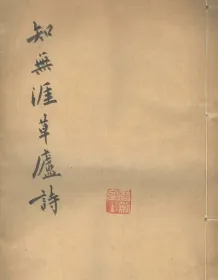 知無涯草廬詩